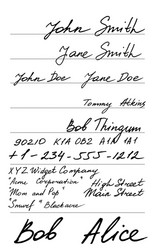 John Smith
Jane Smith
John Doe Jane Doe
Tommy Atkins
Bob Thingum
90210 K1A 0B2 A1A 1A1
+1-234-555-1212
XYZ Widget Company
"Acme Corporation" High Street
"Mom and Pop" Main Street
"Smurf"
Bob Alice